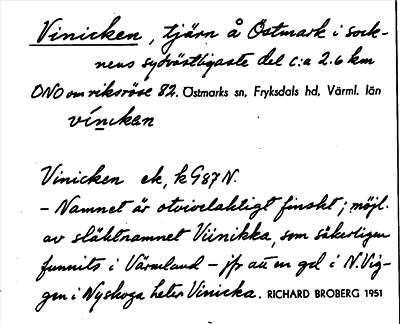 Vinicken, tjärn å Östmark i sock-
nens sydvästligaste del c:a 2.6 km
ONO om riksröse 82. Östmarks sn, Fryksdals hd, Värml. län
vínckan
Vinicken ek, k G87 N.
– Namnet är otvivelaktigt finskt; möjl.
av släktnamnet Viinikka, som säkerligen
funnits i Värmland – jfr att en gd i N. Vig-
gen i Nyskoga heter Vinicka. RICHARD BROBERG 1951